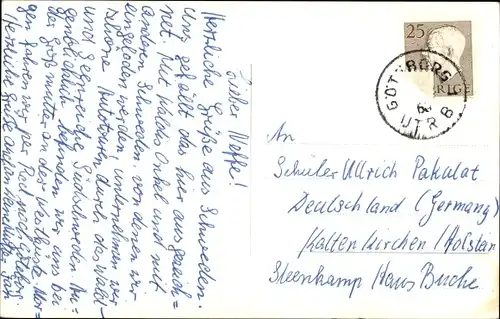 Lieber Waffe!
Herzliche Grüße aus Schweden.
Uns gefällt das hier ausgezeich=
net. Mit Waldis Onkel und mit
anderen Schweden, von denen wir
eingeladen werden, unternehmen wir
schöne Autotouren durch das Wald-
und seenreiche Südschweden. Au-
genblicklich befinden wir uns bei
der Großmutter an der Westküste. Mor-
gen fahren wir per Rad nach
Herzliche Grüße
25
SVERIGE
GÖTEBORG
60
UTR B
An
Schüler Ullrich Pakulat
Deutschland (Germany)
Kaltenkirchen/Holstein
Steenkamp Haus Buche